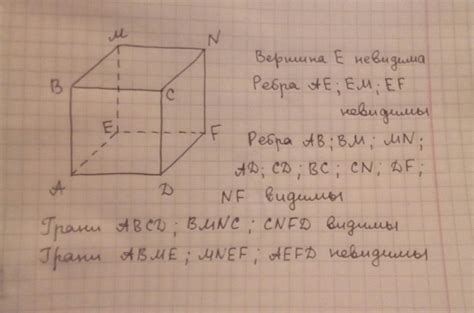 M
N
B
C
E
F
A
D
Вершина E невидима
Ребра AE; EM; EF
невидимы
Ребра AB; BM; MN;
AD; CD; BC; CN; DF;
NF видимы
Грани ABCD; BMNC; CNFD видимы
Грани ABME; MNEF; AEFD невидимы